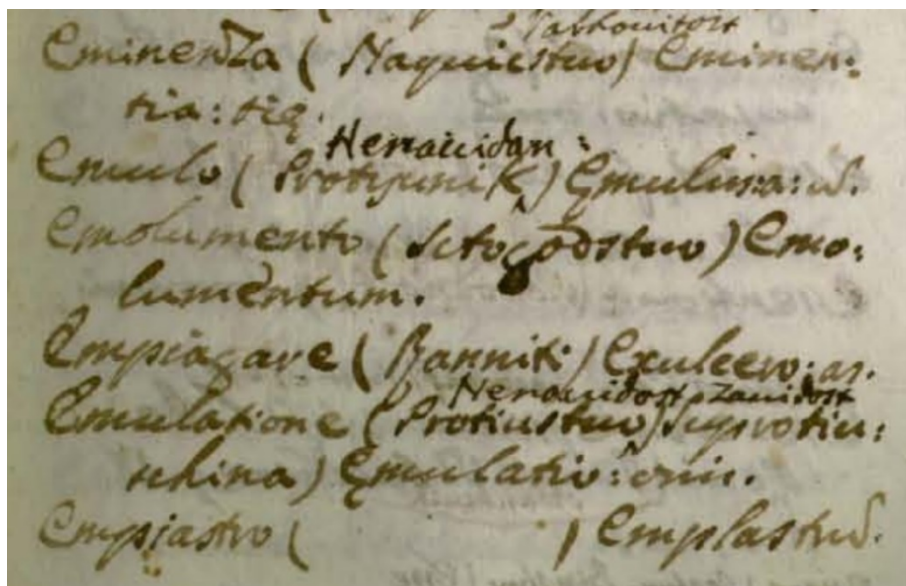 Eminenza ( Naquiestuo) Eminen:
tia: tię.
Nenauidan:
Emulo ( Protiunik) Ęmulus:a:ū.
Emolumento ( Dobrogodstuo ) Emo:
lumentum.
Empiagare ( Ranniti) Exulcero:as.
Nenauidost
Emulatione ( Protiustuo) Suprotiu:
schina) Ęmulatio:onis.
Empiastro ( ) Emplastrū.